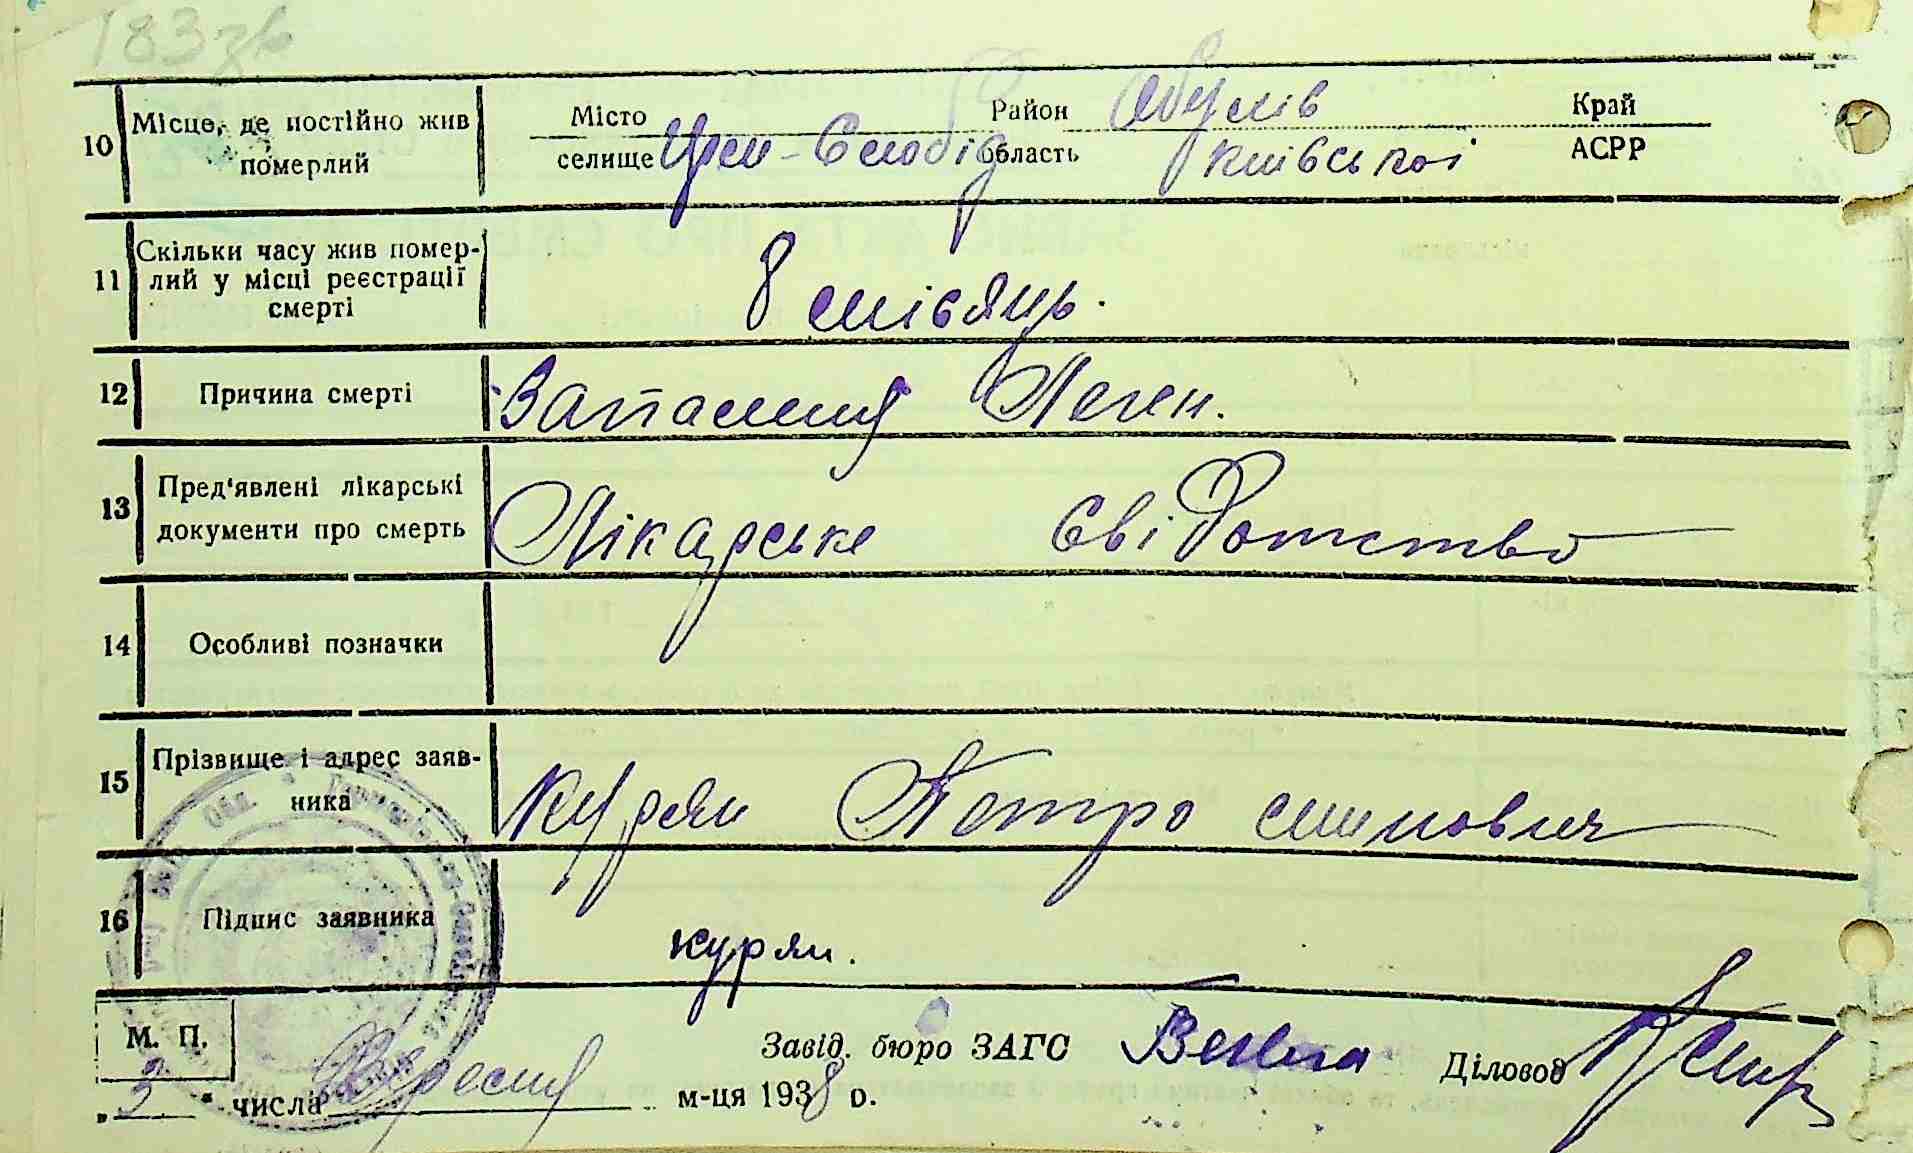 183 зв
10 Місце, де постійно жив померлий
Місто Район Обухів Край
селище Креи-Слобід область Київської АСРР
11 Скільки часу жив помер-
лий у місці реєстрації
смерті
8 місяць.
12 Причина смерті Запалення Леген.
13 Пред'явлені лікарські
документи про смерть
Лікарське Свідотство
14 Особливі позначки
15 Прізвище і адрес заяв-
ника
Курян Петро Симнович
16 Підпис заявника курян.
М. П. Завід. бюро ЗАГС Діловод
„ 2 " числа Вересня м-ця 1938 р.